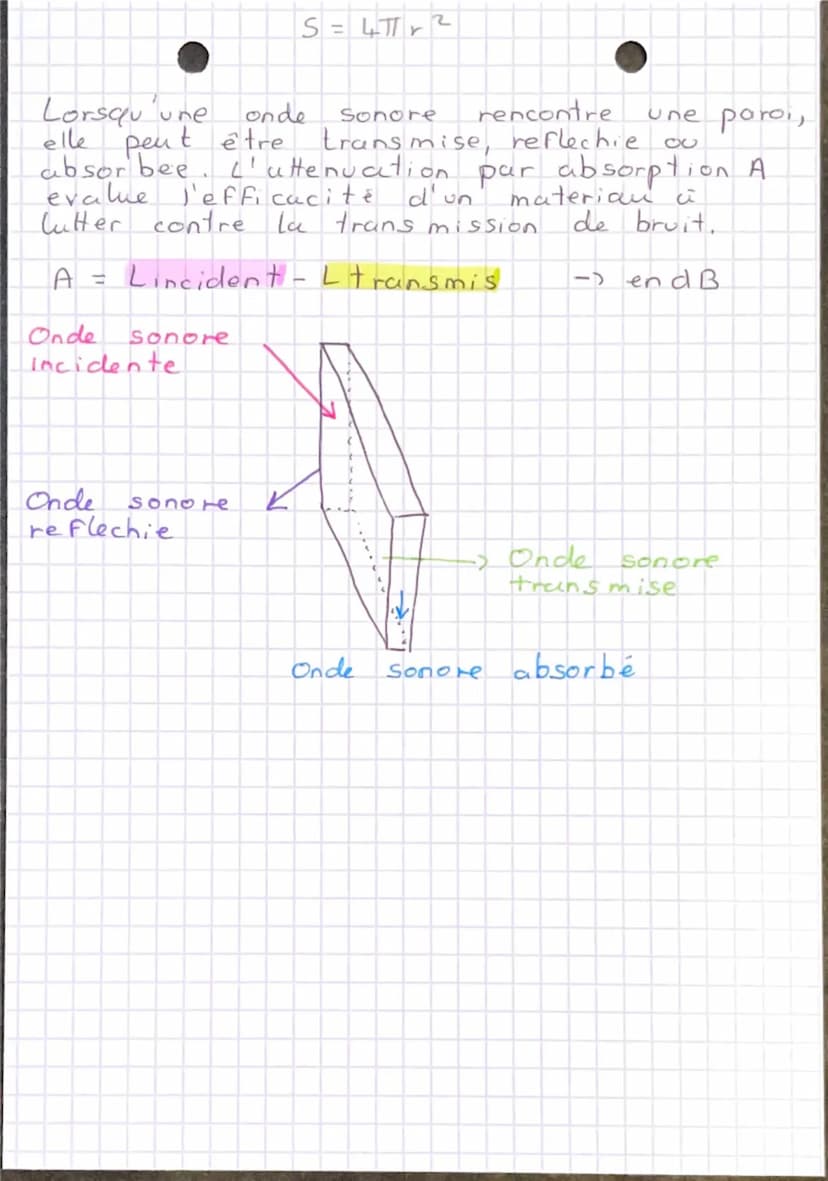 S = 4πr²
Lorsqu'une onde sonore rencontre une paroi,
elle peut être transmise, reflechie ou
absorbee. L'attenuation par absorption A
evalue l'efficacité d'un materiau à
lutter contre la transmission de bruit.
A = Lincident - Ltransmis -> en dB
Onde sonore
incidente
Onde sonore
reflechie
Onde sonore
transmise
Onde sonore absorbé